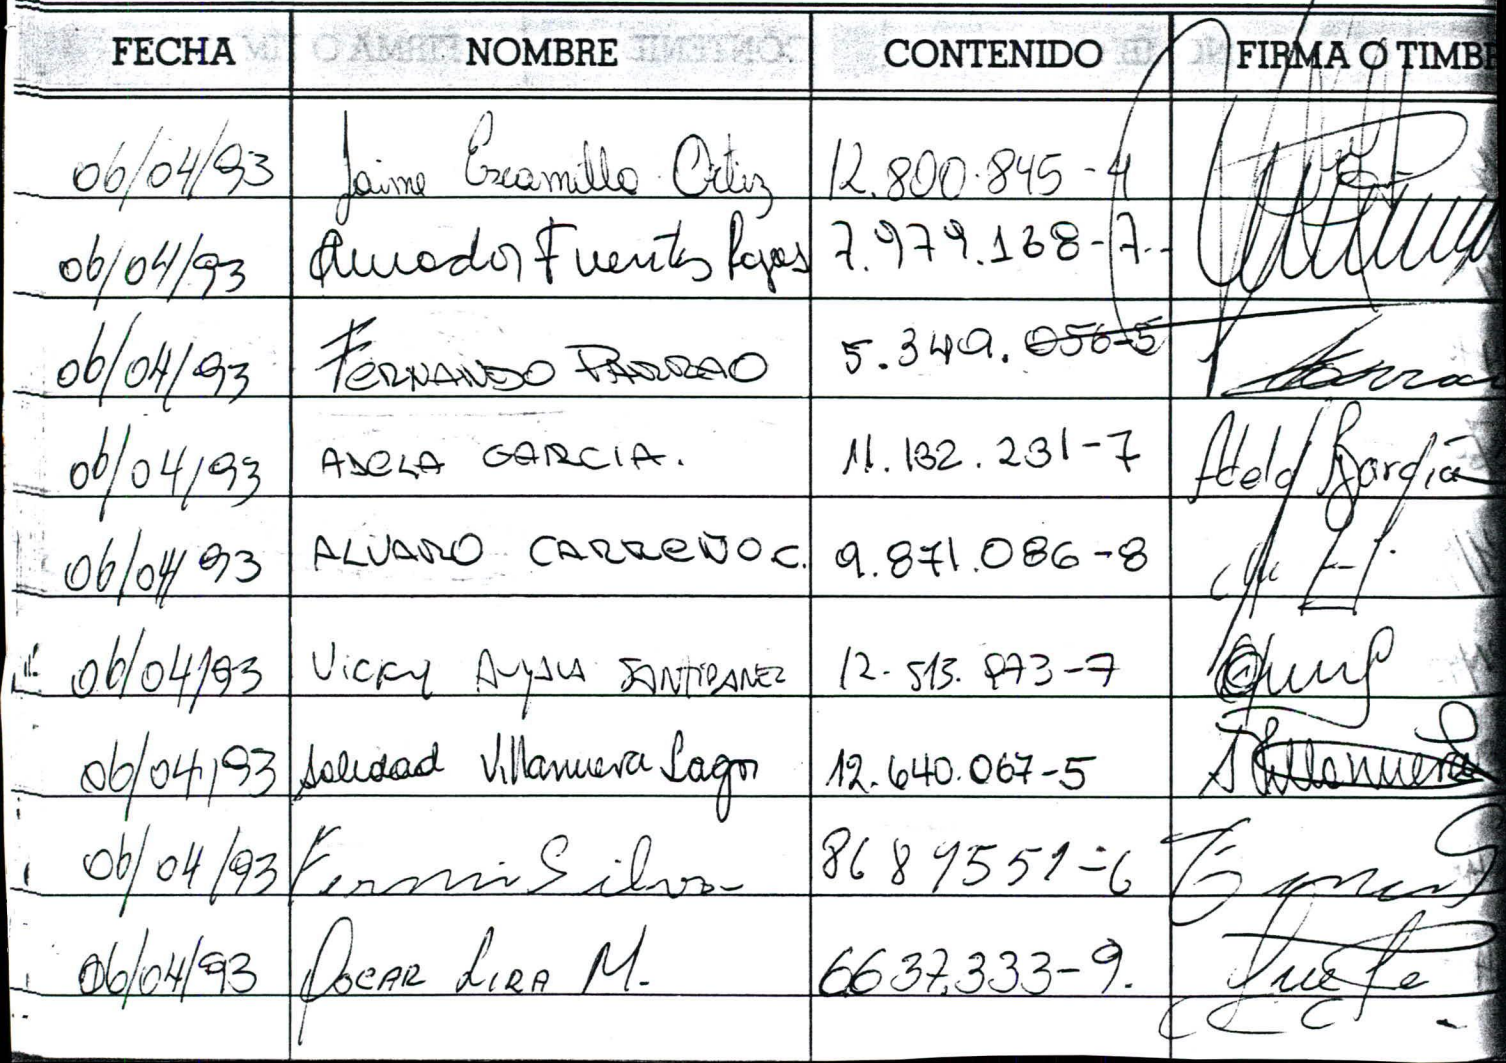 FECHA NOMBRE CONTENIDO FIRMA O TIMBR
06/04/93 Jaime Escamilla Ortiz 12.800.845-4
06/04/93 Amador Fuentes Rojas 7.979.168-7
06/04/93 FERNANDO PARRAO 5.349.056-5
06/04/93 ADELA GARCIA. 11.132.231-7 Adela Garcia
06/04/93 ALVARO CARREÑO C. 9.871.086-8
06/04/93 VICKY AYALA SANTIBANEZ 12.513.873-7
06/04/93 Soledad Villanueva Lagos 12.640.067-5 S Villanueva
06/04/93 Fermin Silva
06/04/93 OSCAR LIRA M. 6637.333-9.